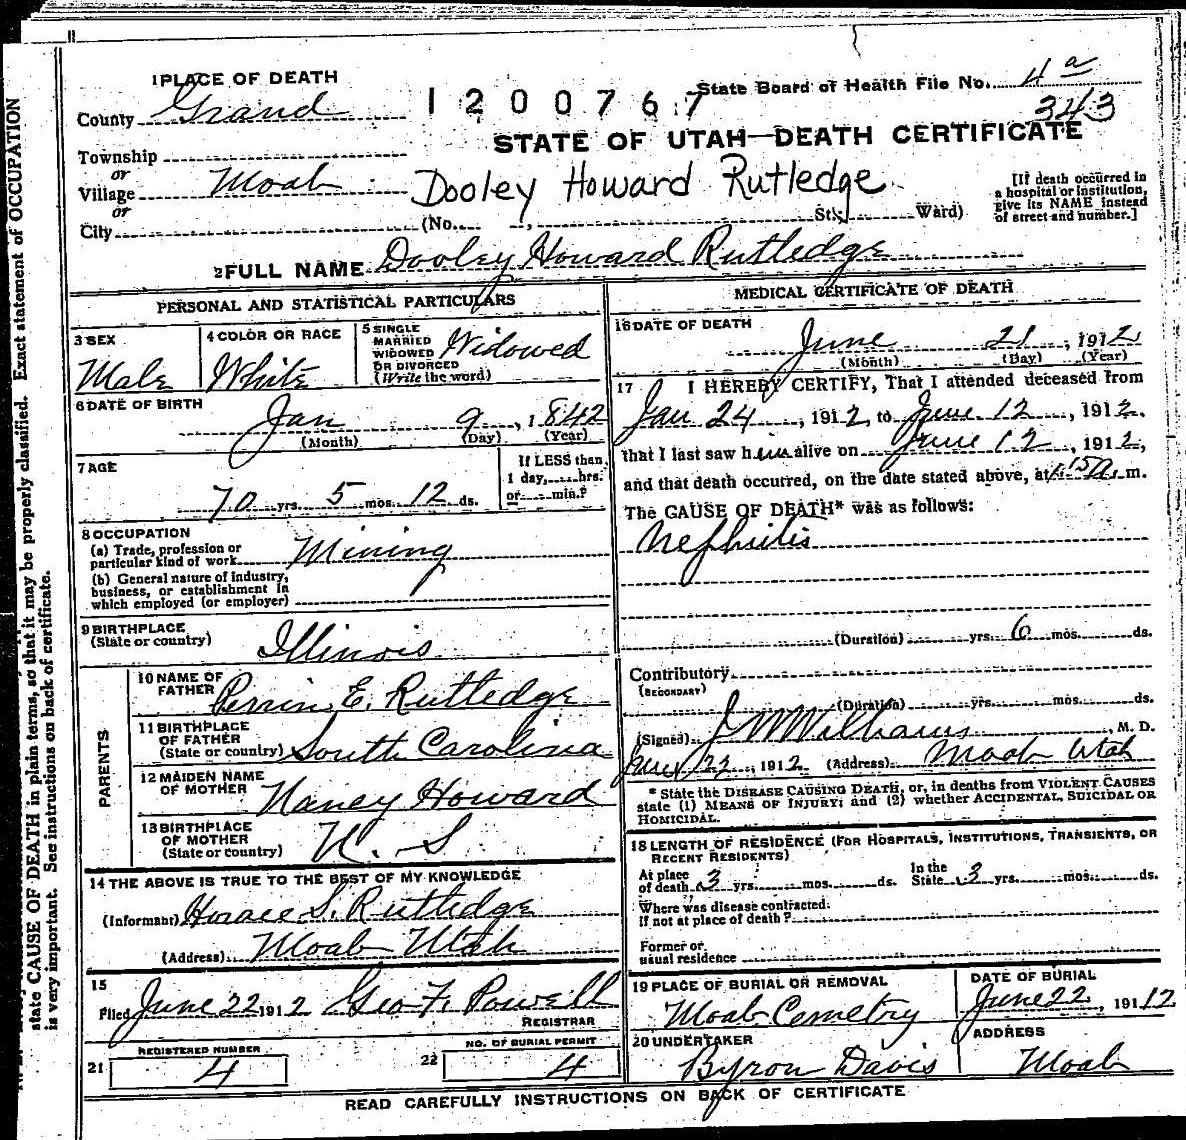 1 PLACE OF DEATH
County Grand
1200767
State Board of Health File No. 4a
343
STATE OF UTAH—DEATH CERTIFICATE
Township
or
Village Moab
or
City
Dooley Howard Rutledge
(No. , St; Ward)
[If death occurred in
a hospital or institution,
give its NAME instead
of street and number.]
2 FULL NAME Dooley Howard Rutledge
PERSONAL AND STATISTICAL PARTICULARS
3 SEX
Male
4 COLOR OR RACE
White
5 SINGLE
MARRIED
WIDOWED
OR DIVORCED
(Write the word)
Widowed
6 DATE OF BIRTH
Jan 9, 1842
(Month) (Day) (Year)
7 AGE
70 yrs. 5 mos. 12 ds.
If LESS than
1 day, hrs.
or min.?
8 OCCUPATION
(a) Trade, profession or
particular kind of work Mining
(b) General nature of industry,
business, or establishment in
which employed (or employer)
9 BIRTHPLACE
(State or country) Illinois
PARENTS
10 NAME OF
FATHER Perrin E. Rutledge
11 BIRTHPLACE
OF FATHER
(State or country) South Carolina
12 MAIDEN NAME
OF MOTHER Nancy Howard
13 BIRTHPLACE
OF MOTHER
(State or country) U. S
14 THE ABOVE IS TRUE TO THE BEST OF MY KNOWLEDGE
(Informant) Horace S. Rutledge
(Address) Moab Utah
15
Filed June 22 1912 Geo F. Powell
REGISTRAR
21 REGISTERED NUMBER
4
22 NO. OF BURIAL PERMIT
4
MEDICAL CERTIFICATE OF DEATH
16 DATE OF DEATH
June 21, 1912
(Month) (Day) (Year)
17 I HEREBY CERTIFY, That I attended deceased from
Jan 24, 1912 to June 12, 1912.
that I last saw him alive on June 12, 1912,
and that death occurred, on the date stated above, at 15 a. m.
The CAUSE OF DEATH* was as follows:
Nephritis
(Duration) yrs. 6 mos. ds.
Contributory
(SECONDARY)
(Duration) yrs. mos. ds.
(Signed) J W Williams, M. D.
June 22, 1912 (Address) Moab Utah
* State the DISEASE CAUSING DEATH, or, in deaths from VIOLENT CAUSES
state (1) MEANS OF INJURY; and (2) whether ACCIDENTAL, SUICIDAL OR
HOMICIDAL.
18 LENGTH OF RESIDENCE (FOR HOSPITALS, INSTITUTIONS, TRANSIENTS, OR
RECENT RESIDENTS)
At place
of death 3 yrs. mos. ds.
In the
State 3 yrs. mos. ds.
Where was disease contracted.
If not at place of death?
Former or
usual residence
19 PLACE OF BURIAL OR REMOVAL
Moab Cemetry
DATE OF BURIAL
June 22, 191 12
20 UNDERTAKER
Byron Davis
ADDRESS
Moab
READ CAREFULLY INSTRUCTIONS ON BACK OF CERTIFICATE
state CAUSE OF DEATH in plain terms, so that it may be properly classified. Exact statement of OCCUPATION
is very important. See instructions on back of certificate.